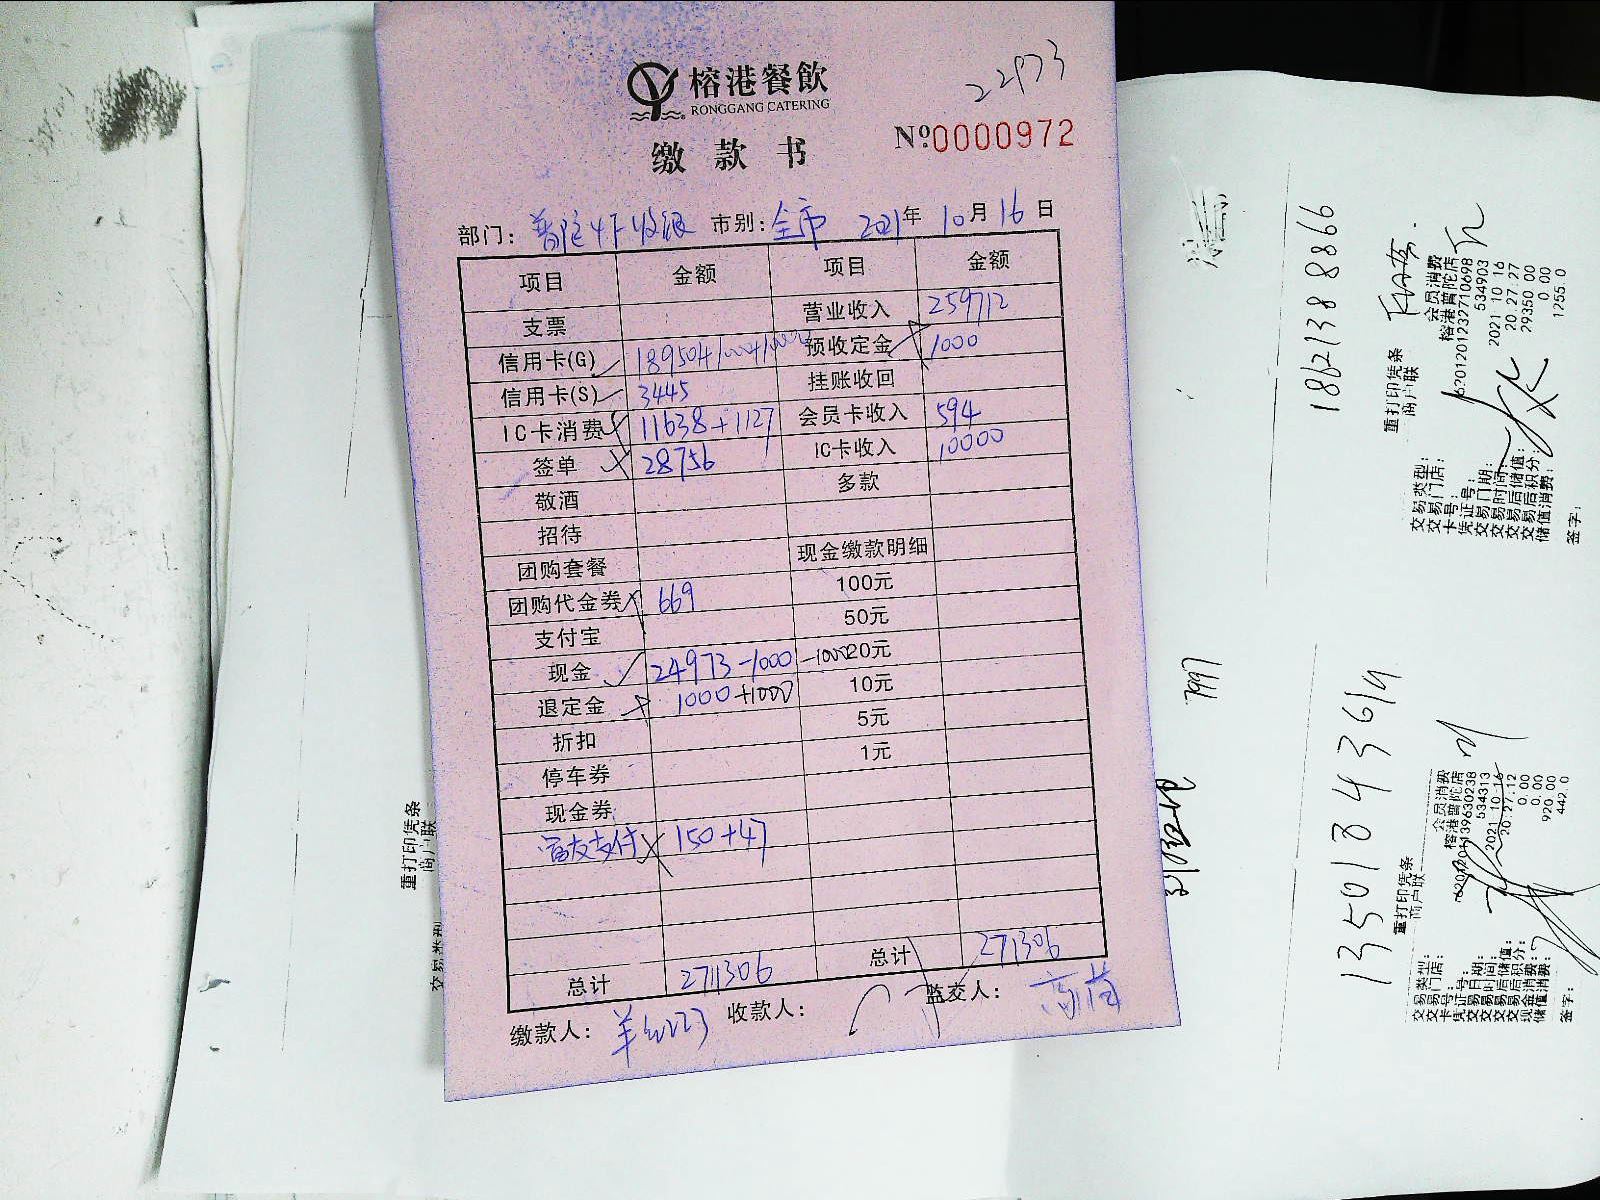 榕港餐飲
RONGGANG CATERING
22973
缴款书
№0000972
部门: 普陀4F收银 市别: 全市 2021年10月16日
项目 金额 项目 金额
支票 营业收入 259712
信用卡(G) 189504+1000+10000 预收定金 1000
信用卡(S) 3445 挂账收回
IC卡消费 11638+1127 会员卡收入 594
签单 28756 IC卡收入 10000
敬酒 多款
招待
团购套餐 现金缴款明细
团购代金券 669 100元
支付宝 50元
现金 24973-1000-1000 20元
退定金 1000+1000 10元
折扣 5元
停车券 1元
现金券
富友支付 150+47
总计 271306 总计 271306
缴款人: 收款人: 监交人:
重打印凭条
商户联
交易类型
18621388866
重打印凭条
商户联
交易类型: 会员消费
交易门店: 榕港普陀店
卡号: 6201201232710698
凭证号: 534903
交易日期: 2021 10 16
交易时间: 20:27:27
交易后储值: 29350.00
交易后积分: 0.00
储值消费: 1255.0
签字:
7997
13501843619
重打印凭条
商户联
交易类型: 会员消费
交易门店: 榕港普陀店
卡号: 6201201213963023​8
凭证号: 534313
交易日期: 2021-10-16
交易时间: 20:27:12
交易后储值: 0.00
交易后积分: 0.00
现金消费: 920.00
储值消费: 442.0
签字: